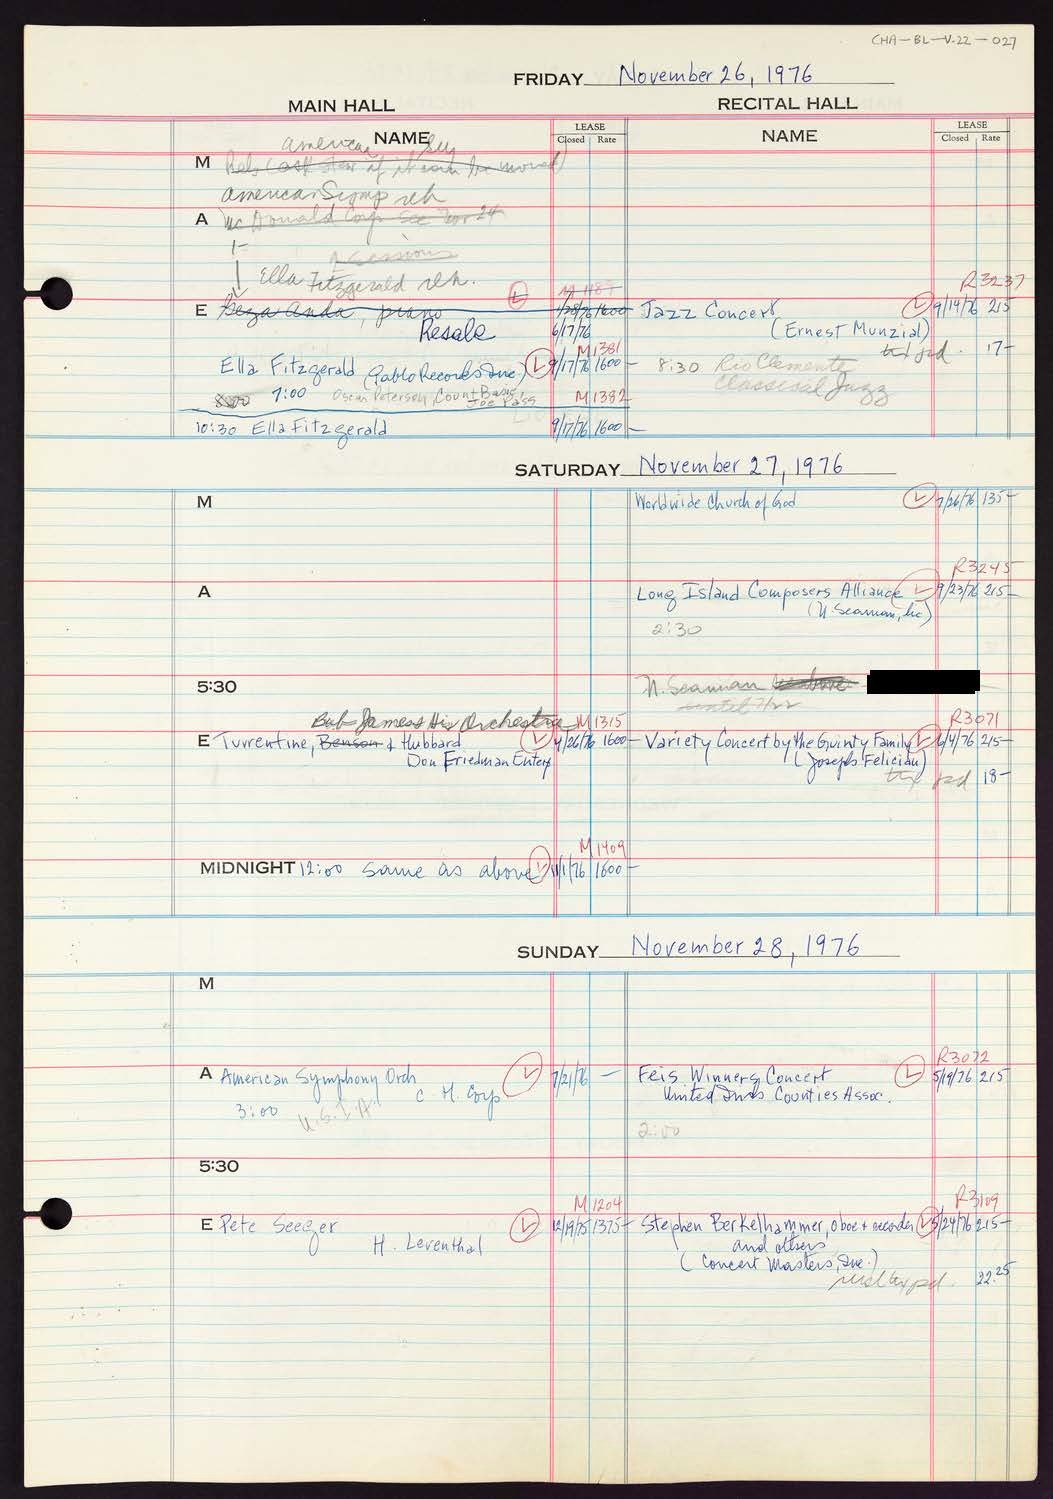 CHA-BL-V.22-027
FRIDAY November 26, 1976
MAIN HALL
RECITAL HALL
NAME
LEASE
Closed Rate
NAME
LEASE
Closed Rate
American
M Reh (ask Stew if it can be moved)
American Symp reh
A McDonald Corp See Nov 24
1-
2 sessions
Ella Fitzgerald reh.
E Geza Anda, piano
M 1187
1/28/76 1600-
Resale
6/17/76
R3237
Jazz Concert 9/14/76 215
(Ernest Munzial)
tax pd. 17-
M1381
Ella Fitzgerald (Pablo Records Inc.) 9/17/76 1600-
8:30 Rio Clemente
Classical Jazz
8:00 7:00 Oscar Peterson, Count Basie,
Joe Pass
M1382
10:30 Ella Fitzgerald 9/17/76 1600-
SATURDAY November 27, 1976
M
Worldwide Church of God 7/26/76 135-
A
R3245
Long Island Composers Alliance 9/23/76 215-
(N. Seaman, Inc)
2:30
5:30
N. Seaman see above
until 7/22
Bob James & His Orchestra M1315
E Turrentine, Benson & Hubbard 4/26/76 1600-
Don Friedman Enterp
R3071
Variety Concert by the Guinty Family 6/4/76 215-
(Joseph Felician)
tax pd 18-
M1409
MIDNIGHT 12:00 same as above 11/1/76 1600-
SUNDAY November 28, 1976
M
A American Symphony Orch 7/21/76 -
C. H. Corp
3:00 U.S.I.A.
R3072
Feis Winners Concert 5/19/76 215
United Irish Counties Assoc.
2:00
5:30
M1204
E Pete Seeger 12/19/75 1375-
H. Leventhal
R3109
Stephen Berkelhammer, oboe & recorder 5/24/76 215-
and others
(Concert Masters, Inc.)
tax pd. 22.25